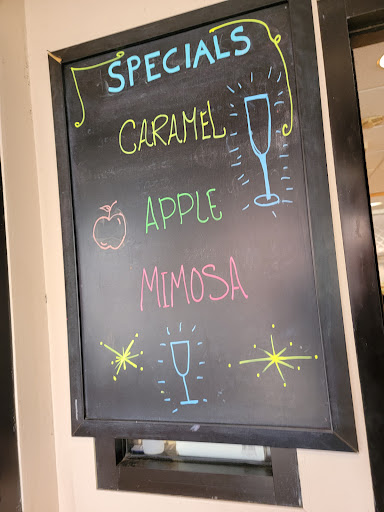 SPECIALS
CARAMEL
APPLE
MIMOSA